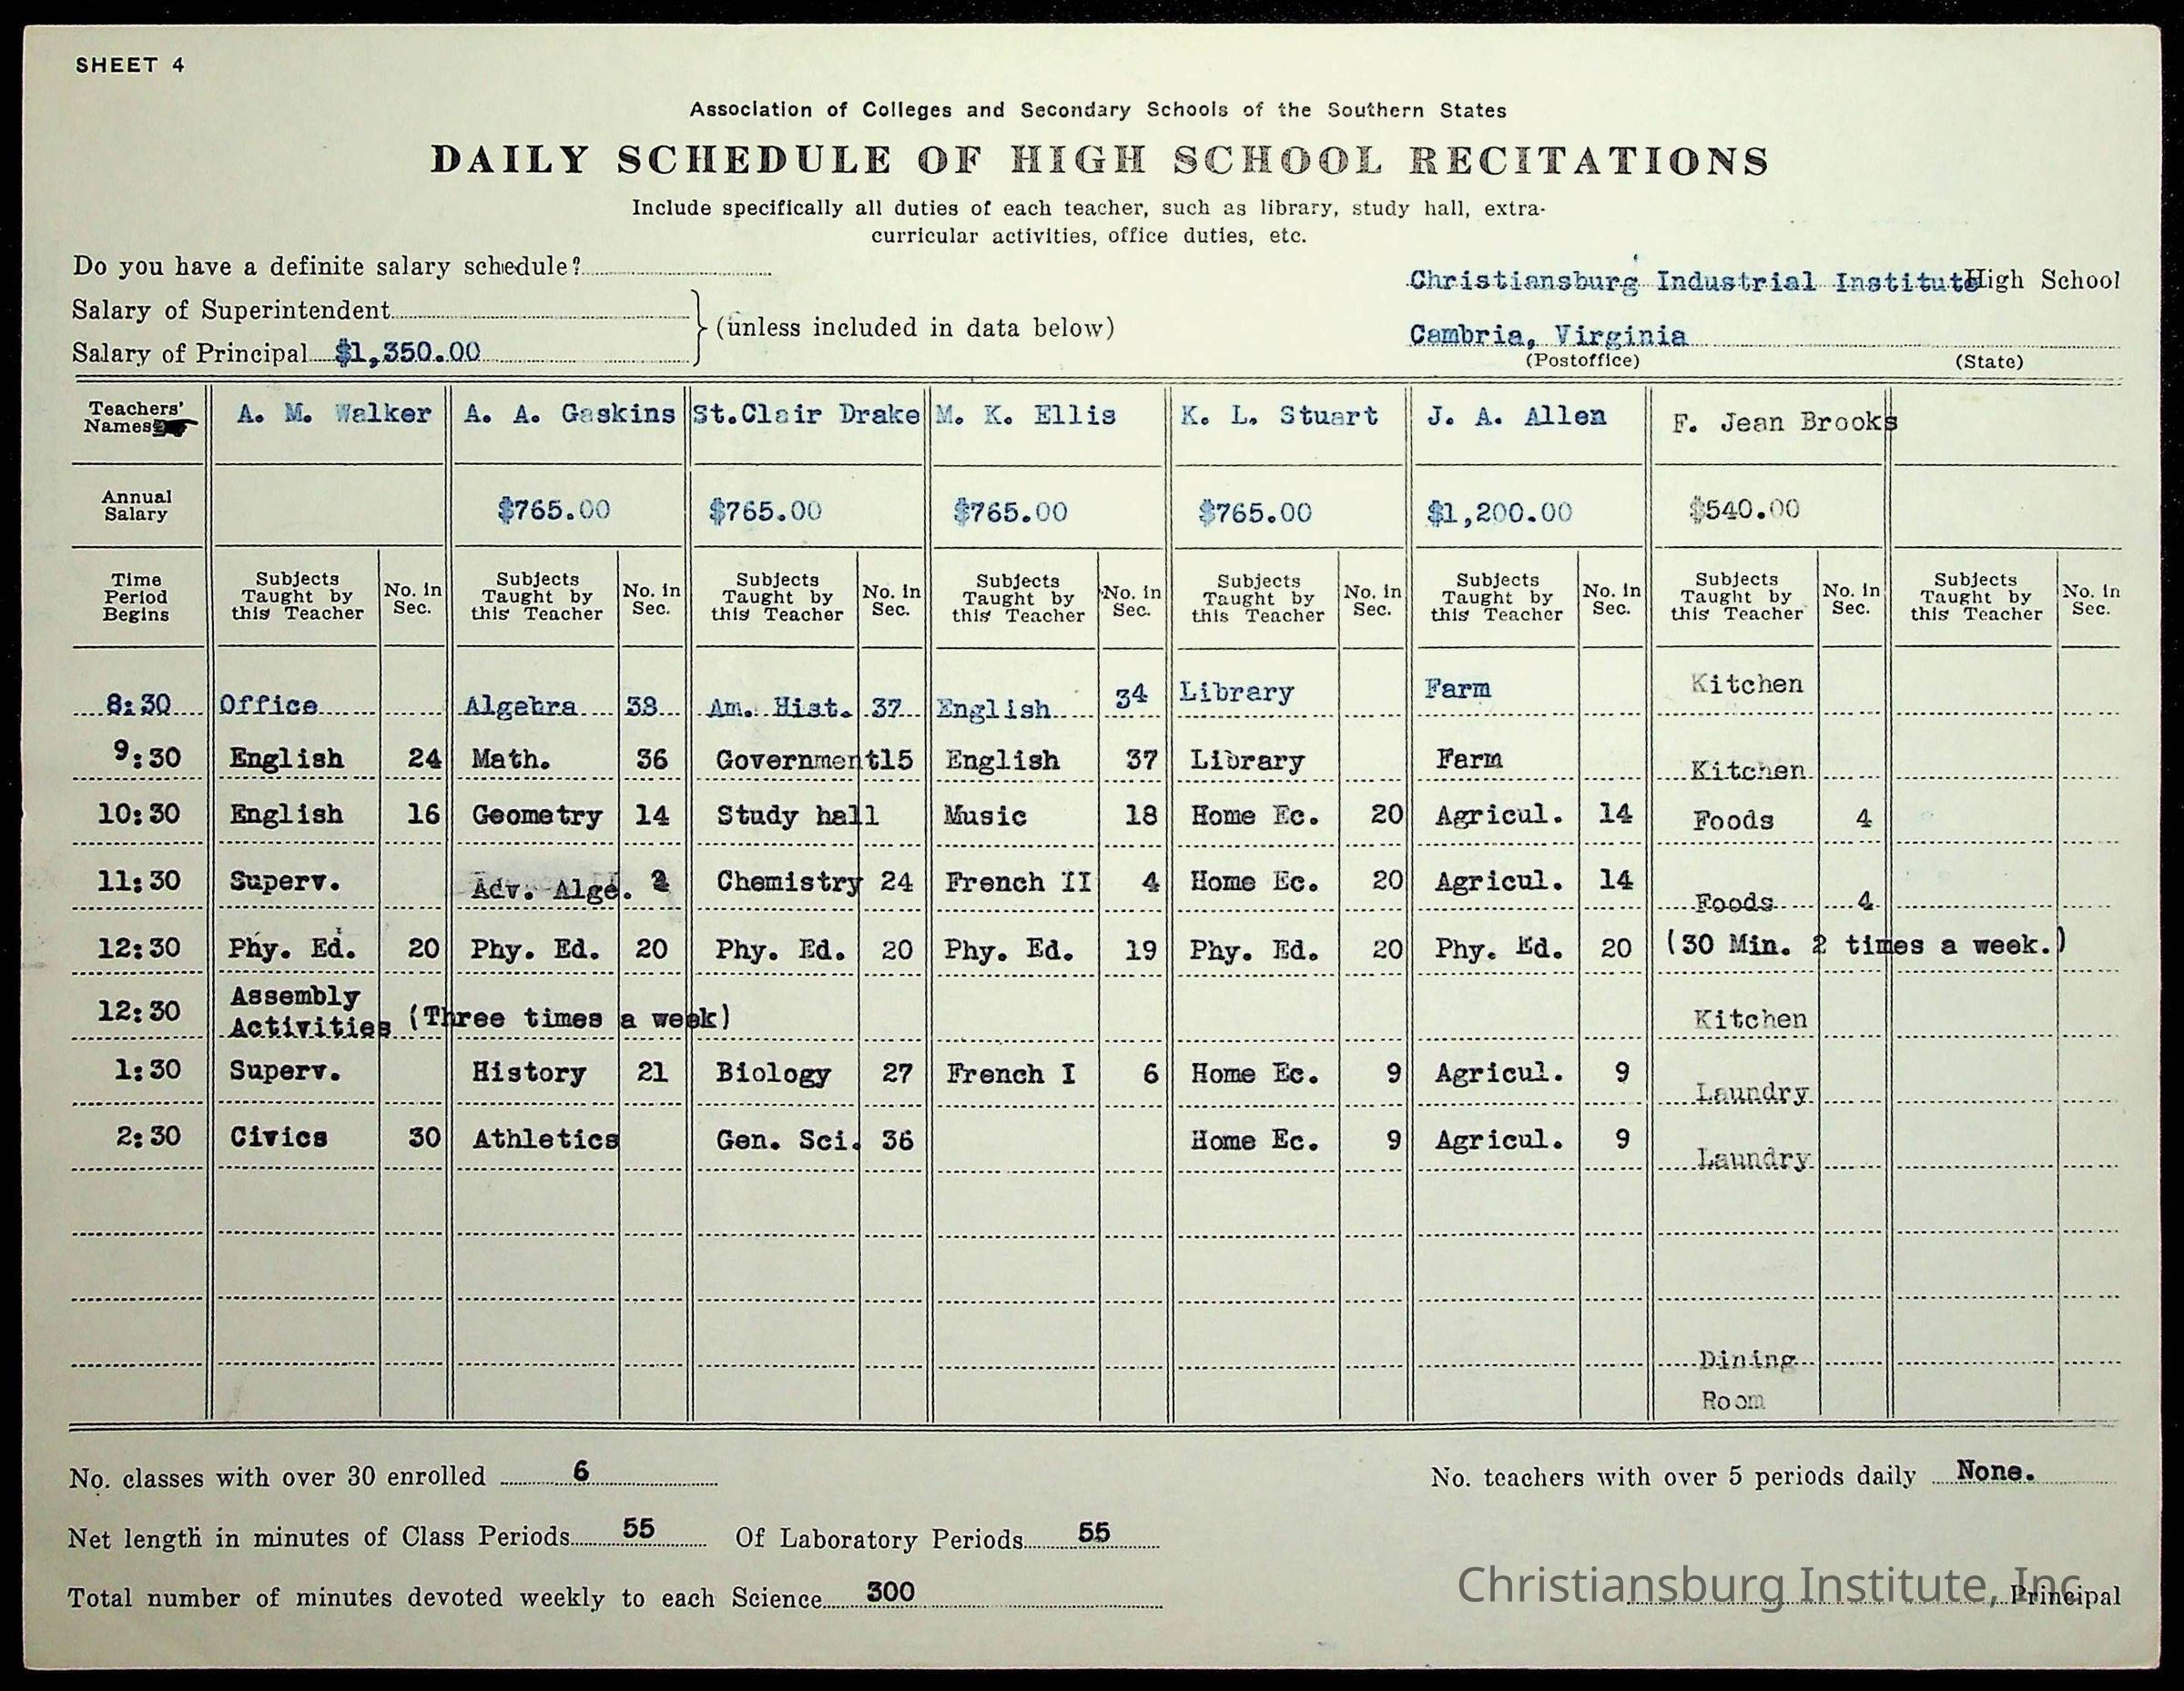 SHEET 4
Association of Colleges and Secondary Schools of the Southern States
DAILY SCHEDULE OF HIGH SCHOOL RECITATIONS
Include specifically all duties of each teacher, such as library, study hall, extra-
curricular activities, office duties, etc.
Do you have a definite salary schedule?
Christiansburg Industrial Institute High School
Salary of Superintendent
(unless included in data below)
Cambria, Virginia
Salary of Principal $1,350.00
(Postoffice) (State)
Teachers' Names A. M. Walker A. A. Gaskins St.Clair Drake M. K. Ellis K. L. Stuart J. A. Allen F. Jean Brooks
Annual Salary $765.00 $765.00 $765.00 $765.00 $1,200.00 $540.00
Time Period Begins Subjects Taught by this Teacher No. in Sec. Subjects Taught by this Teacher No. in Sec. Subjects Taught by this Teacher No. in Sec. Subjects Taught by this Teacher No. in Sec. Subjects Taught by this Teacher No. in Sec. Subjects Taught by this Teacher No. in Sec. Subjects Taught by this Teacher No. in Sec. Subjects Taught by this Teacher No. in Sec.
8:30 Office Algebra Am. Hist. 37 English 34 Library Farm Kitchen
9:30 English 24 Math. 36 Government 15 English 37 Library Farm Kitchen
10:30 English 16 Geometry 14 Study hall Music 18 Home Ec. 20 Agricul. 14 Foods 4
11:30 Superv. Adv. Alge. Chemistry 24 French II 4 Home Ec. 20 Agricul. 14 Foods 4
12:30 Phy. Ed. 20 Phy. Ed. 20 Phy. Ed. 20 Phy. Ed. 19 Phy. Ed. 20 Phy. Ed. 20 (30 Min. 2 times a week.)
12:30 Assembly Activities (Three times a week) Kitchen
1:30 Superv. History 21 Biology 27 French I 6 Home Ec. 9 Agricul. 9 Laundry
2:30 Civics 30 Athletics Gen. Sci. 36 Home Ec. 9 Agricul. 9 Laundry
Dining
Room
No. classes with over 30 enrolled 6 No. teachers with over 5 periods daily None.
Net length in minutes of Class Periods 55 Of Laboratory Periods 55
Total number of minutes devoted weekly to each Science 300 Principal
Christiansburg Institute, Inc